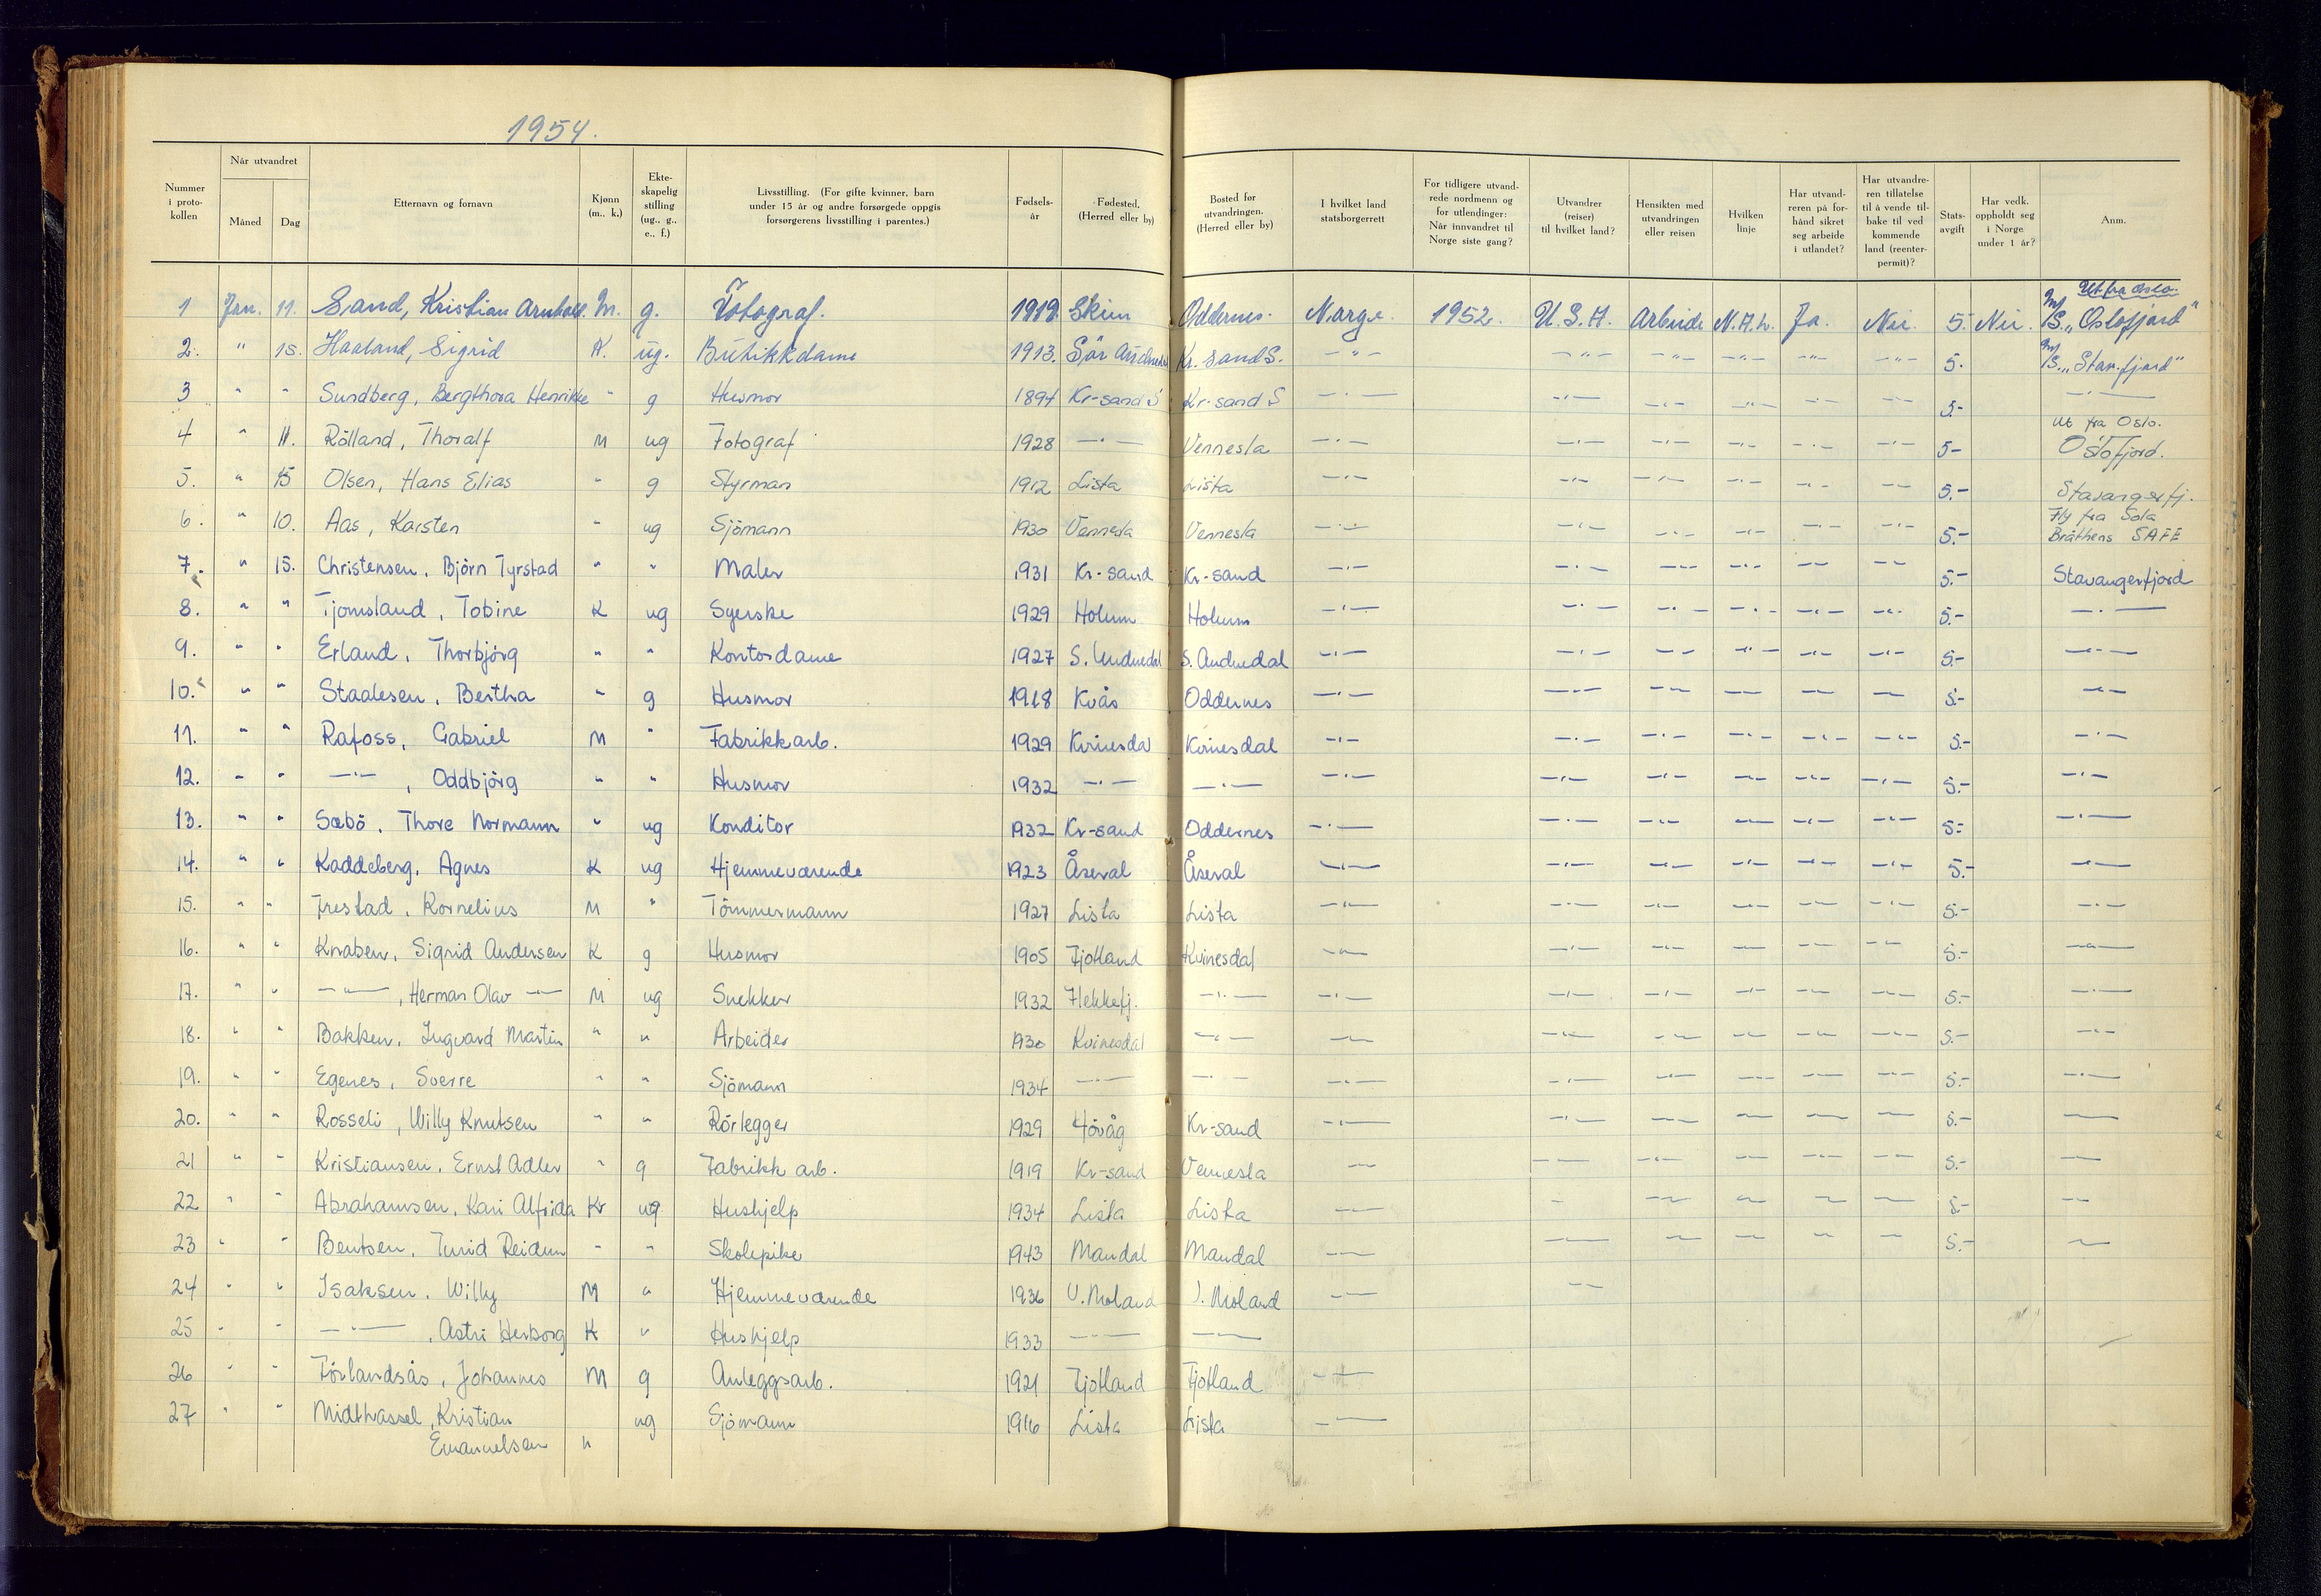 1954.
Nummer i protokollen | Når utvandret Måned Dag | Etternavn og fornavn | Kjønn (m., k.) | Ekteskapelig stilling (ug., g., e., f.) | Livsstilling. (For gifte kvinner, barn under 15 år og andre forsørgede oppgis forsørgerens livsstilling i parentes.) | Fødselsår | Fødested. (Herred eller by) | Bosted før utvandringen. (Herred eller by) | I hvilket land statsborgerrett | For tidligere utvandrede nordmenn og for utlendinger: Når innvandret til Norge siste gang? | Utvandrer (reiser) til hvilket land? | Hensikten med utvandringen eller reisen | Hvilken linje | Har utvandreren på forhånd sikret seg arbeide i utlandet? | Har utvandreren tillatelse til å vende tilbake til vedkommende land (reenterpermit)? | Statsavgift | Har vedk. oppholdt seg i Norge under 1 år? | Anm.
1 Jan. 11. Sand, Kristian M. g. Fotograf. 1919. Skien Oddernes. Norge 1952. U.S.A. Arbeide N.A.L. Ja. Nei. 5. Nei. Ut fra Oslo. M/S. „Oslofjord"
2. " 15. Haaland, Sigrid K. ug. Butikkdame 1913. Sör Audnedal Kr. sand S. —"— —"— —"— —"— —"— —"— 5. M/S. „Stav.fjord"
3 " " Sundberg, Bergthora Henrikke " g Husmor 1894 Kr-sand S Kr-sand S —"— —"— —"— —"— —"— —"— 5.- —"—
4 " 11. Rölland, Thoralf M ug Fotograf 1928 —"— Vennesla —"— —"— —"— —"— —"— —"— 5- Ut fra Oslo. Oslofjord.
5. " 15 Olsen, Hans Elias " g Styrman 1912 Lista Lista —"— —"— —"— —"— —"— —"— 5.- Stavangerfj.
6. " 10. Aas, Karsten " ug Sjömann 1930 Vennesla Vennesla —"— —"— —"— —"— —"— —"— 5.- Fly fra Sola Bråthens SAFE
7. " 15. Christensen, Björn Tyrstad " " Maler 1931 Kr-sand Kr-sand —"— —"— —"— —"— —"— —"— 5.- Stavangerfjord
8. " " Tjomsland, Tobine K ug Syerske 1929 Holum Holum —"— —"— —"— —"— —"— —"— 5.- —"—
9. " " Erland, Thorbjörg " " Kontordame 1927 S. Audnedal S. Audnedal —"— —"— —"— —"— —"— —"— 5.- —"—
10. " " Staalesen, Bertha " g Husmor 1918 Kvås Oddernes —"— —"— —"— —"— —"— — 5.- —"—
11. " " Rafoss, Gabriel M " Fabrikkarb. 1929 Kvinesdal Kvinesdal —"— —"— —"— —"— —"— —"— 5.- —"—
12. " " —"—, Oddbjörg " " Husmor 1932 —"— —"— —"— —"— —"— —"— —"— —"— 5.- —"—
13. " " Sæbö, Thore Normann " ug Konditor 1932 Kr-sand Oddernes —"— —"— —"— —"— —"— —"— 5.- —"—
14. " " Kaddeberg, Agnes K ug Hjemmeværende 1923 Åseral Åseral —"— —"— —"— —"— —"— —"— 5.- —"—
15. " " Jrestad, Kornelius M " Tömmermann 1927 Lista Lista —"— —"— —"— —"— —"— —"— 5.- —"—
16. " " Knaben, Sigrid Andersen K g Husmor 1905 Fjotland Kvinesdal —"— —"— —"— —"— —"— —"— 5.- —"—
17. " " —"—, Herman Olav —"— M ug Snekker 1932 Flekkefj. —"— —"— —"— —"— —"— —"— —"— 5.- —"—
18. " " Bakken, Ingvard Martin " " Arbeider 1930 Kvinesdal —"— —"— —"— —"— —"— —"— —"— 5.- —"—
19. " " Egenes, Sverre " " Sjömann 1934 —"— —"— —"— —"— —"— —"— —"— —"— 5.- —"—
20. " " Rosseli, Willy Knutsen " " Rörlegger 1929 Hövåg Kr-sand —"— —"— — — — — 5.- —
21 " " Kristiansen, Ernst Adler " g Fabrikk arb. 1919 Kr-sand Vennesla — — — — — — 5.- —
22 " " Abrahamsen, Kari Alfrida K ug Hushjelp 1934 Lista Lista — — — — — — 5.- —
23 " " Bentsen, Turid Reidun " " Skolepike 1943 Mandal Mandal — — — — — — 5.- —
24 " " Isaksen, Willy M " Hjemmeværende 1936 V. Moland V. Moland — —
25 " " —"—, Astri Herborg K " Hushjelp 1933 —"— —
26 " " Förlandsås, Johannes M g Anleggsarb. 1921 Fjotland Fjotland —"—
27 " " Midthassel, Kristian ug Sjömann 1916 Lista Lista —"—
Emanuelsen "